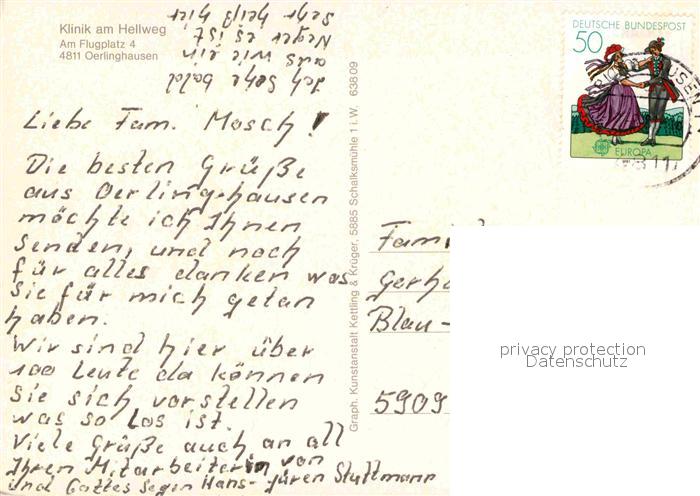 Klinik am Hellweg
Am Flugplatz 4
4811 Oerlinghausen
Ich sehe bald
aus wie ein
Neger es ist
sehr heiß hier
Liebe Fam. Mosch!
Die besten Grüße
aus Oerlinghausen
möchte ich Ihnen
senden, und noch
für alles danken was
Sie für mich getan
haben.
Wir sind hier über
100 Leute da können
Sie sich vorstellen
was so Los ist.
Viele Grüße auch an all
Ihren Mitarbeiterin von
und Gottes Segen Hans-Jüren Stuttmann
Graph. Kunstanstalt Kettling & Krüger, 5885 Schalksmühle 1 i.W. 638.09
DEUTSCHE BUNDESPOST
50
EUROPA
Fam
Gerh
Blau-
5909
privacy protection
Datenschutz